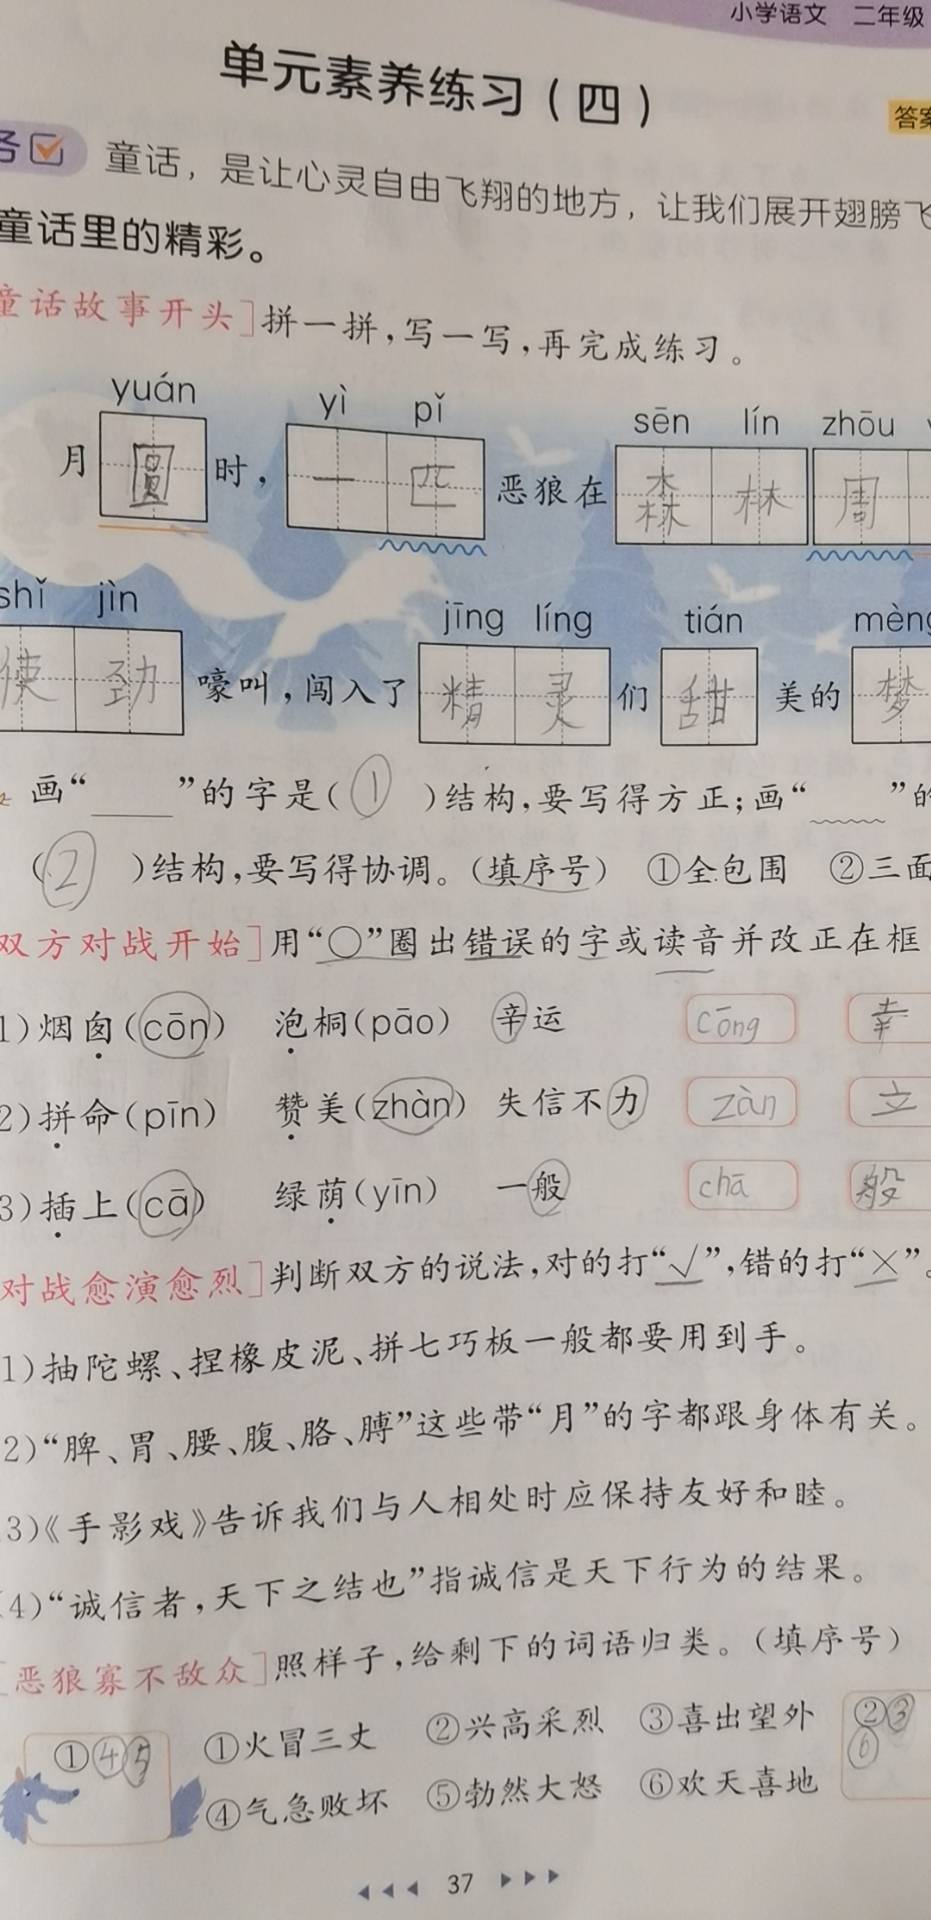 小学语文 二年级
单元素养练习（四）
答案
务 童话，是让心灵自由飞翔的地方，让我们展开翅膀飞
童话里的精彩。
童话故事开头］拼一拼，写一写，再完成练习。
yuán yì pǐ sēn lín zhōu
月 圆 时，一 匹 恶狼在 森 林 周
shǐ jìn jīng líng tián mèng
使 劲 嚎叫，闯入了 精 灵 们 甜 美的 梦
画“____”的字是（ 1 ）结构，要写得方正；画“﹏﹏”的
（ 2 ）结构，要写得协调。（填序号） ①全包围 ②三面
双方对战开始］用“○”圈出错误的字或读音并改正在框
1)烟囱(cōn) 泡桐(pāo) 辛运 cōng 幸
2)拼命(pīn) 赞美(zhàn) 失信不力 zàn 立
3)插上(cā) 绿荫(yīn) 一般 chā 般
对战愈演愈烈］判断双方的说法，对的打“√”，错的打“×”。
1)抽陀螺、捏橡皮泥、拼七巧板一般都要用到手。
2)“脾、胃、腰、腹、胳、膊”这些带“月”的字都跟身体有关。
3)《手影戏》告诉我们与人相处时应保持友好和睦。
(4)“诚信者，天下之结也”指诚信是天下行为的结果。
［恶狼寡不敌众］照样子，给剩下的词语归类。（填序号）
①④⑤ ①火冒三丈 ②兴高采烈 ③喜出望外 ②③
⑥
④气急败坏 ⑤勃然大怒 ⑥欢天喜地
37